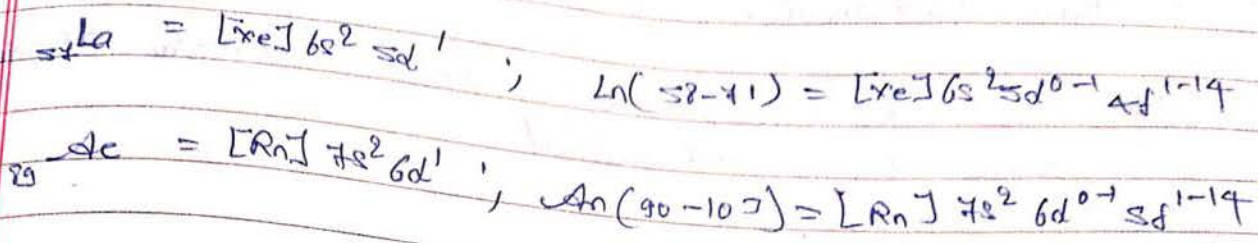 ₅₇La = [Xe] 6s² 5d¹ ; Ln(58-71) = [Xe] 6s² 5d⁰⁻¹ 4f¹⁻¹⁴
₈₉Ac = [Rn] 7s² 6d¹ ; An(90-103) = [Rn] 7s² 6d⁰⁻¹ 5f¹⁻¹⁴